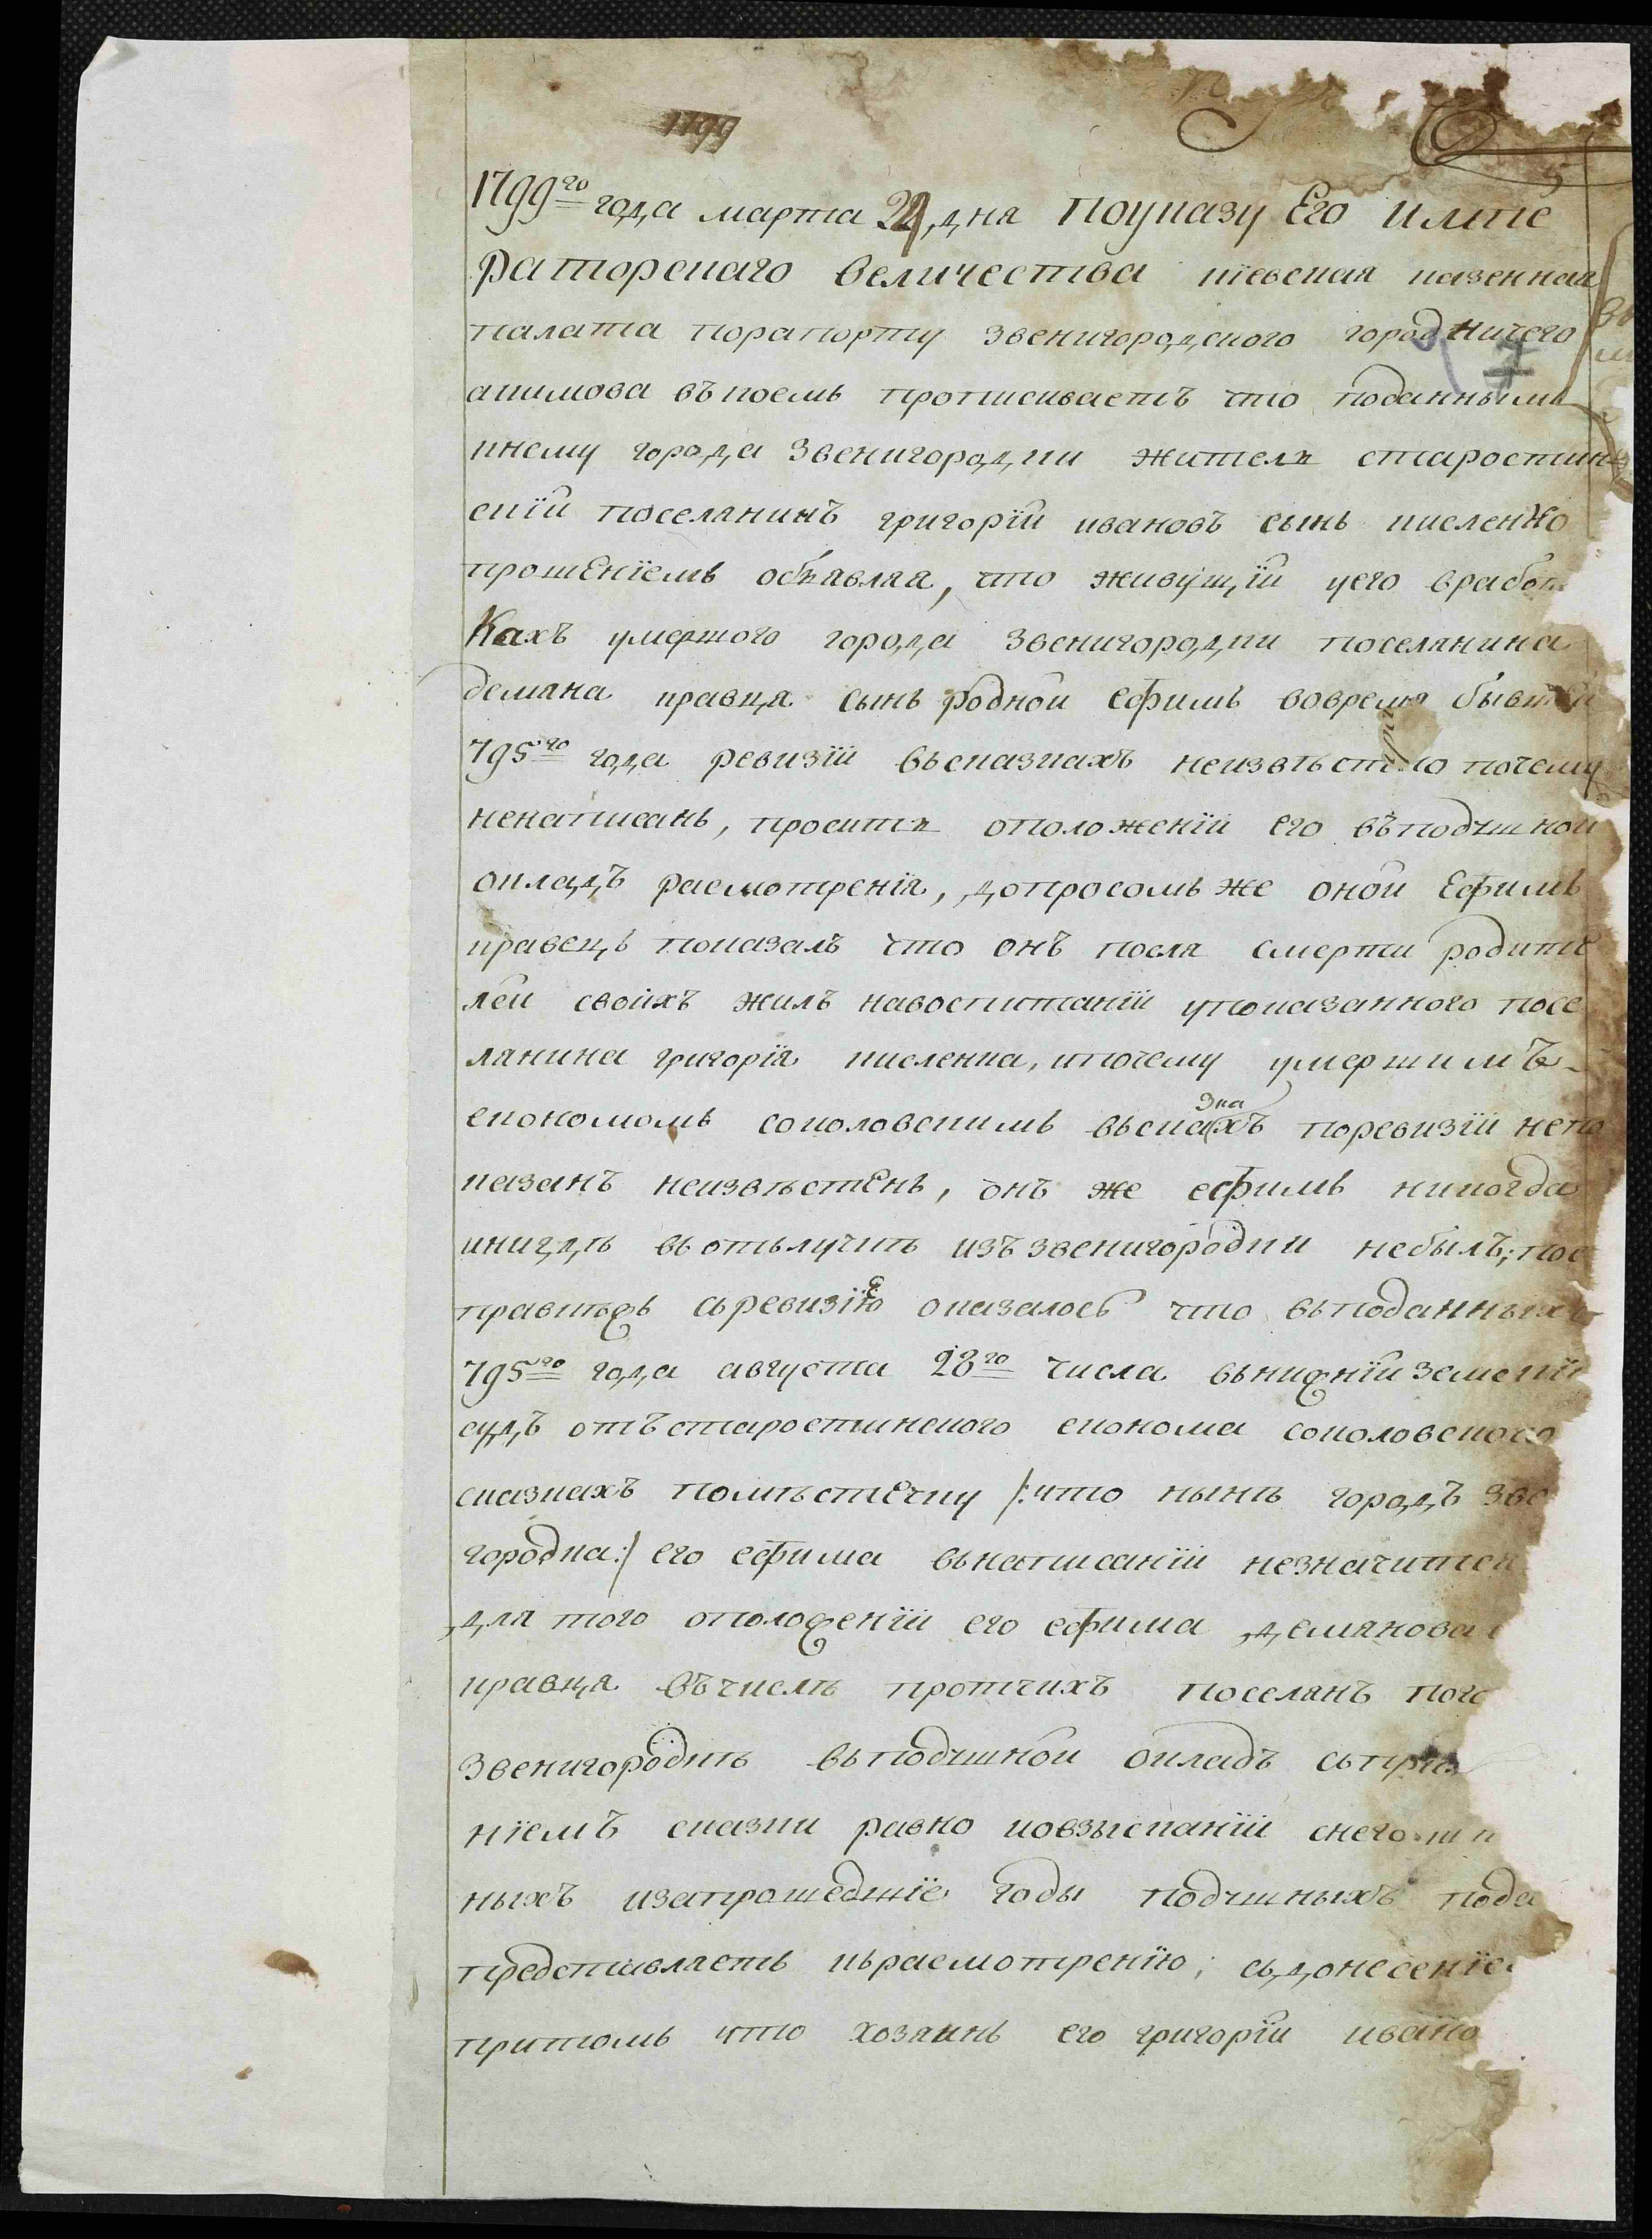 1799
1799го года марта 22 дня Поуказу Его Импе
Раторскаго Величества киевская казенная
палата порапорту звенигородского городничего
акимова въкоемъ прописиваетъ что поданнымъ
кнему города Звенигородки жителя старостин
скїй поселянинъ григорїй ивановъ сынъ кисленко
прошенїемъ объявляя, что живущїй унего вработ
Кахъ умершого города Звенигородки поселянина
демяна кравця сынъ родной ефимъ вовремя бывшей
795го года ревизїй въсказкахъ неизвѣстно почему
ненаписанъ, проситъ оположенїи его въподушной
окладъ расмотренїя, допросомъ же оной Ефимъ
кравецъ показалъ что онъ посля смерти родите
лей своихъ жилъ навоспитанїй упоказанного посе
лянина григорїя кисленка, ипочему умершимъ
економомъ соколовскимъ въсказкахъ поревизїй непо
казанъ неизвѣстенъ, онъ же ефимъ никогда
инигдѣ въотълучкѣ изъзвенигородки небылъ; пос
правкѣ съревизїею оказалось что въподанныхъ
795го года августа 28го числа внижнїй земскїй
судъ отъстаростинского економа соколовского
сказкахъ помѣстечку /:что нынѣ городъ зве
городка:/ его ефима внаписанїй незначится
для того оположенїй его ефима демянова
кравця въчислѣ протчихъ поселянъ пого
Звенигородкѣ въподушной окладъ съпри
нїемъ сказки равно иовзысканїй снего
ныхъ изапрошедшїе годы подушныхъ пода
представляетъ красмотренїю; съдонесенїе
притомъ что хозяинъ его григорїй ивано